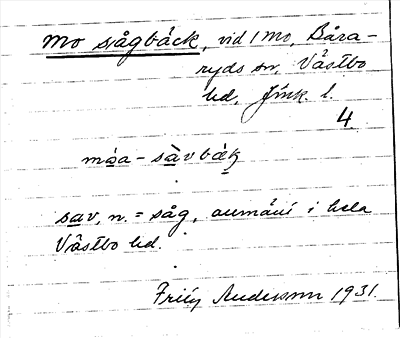 Mo sågbäck, vid 1 Mo, Båra-
ryds sn, Västbo
hd, Jönk. l.
4
sav, n. = såg, allmänt i hela
Västbo hd.
Fritz Anderson 1931.